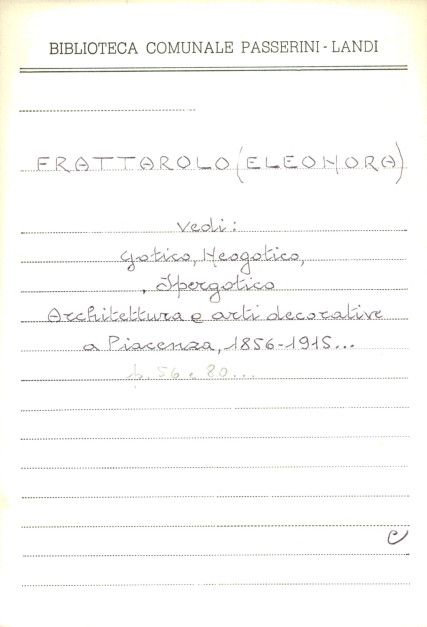 BIBLIOTECA COMUNALE PASSERINI - LANDI
FRATTAROLO (ELEONORA)
Vedi:
Gotico, Neogotico,
, Ipergotico
Architettura e arti decorative
a Piacenza, 1856-1915...
p. 56 e 80...
C